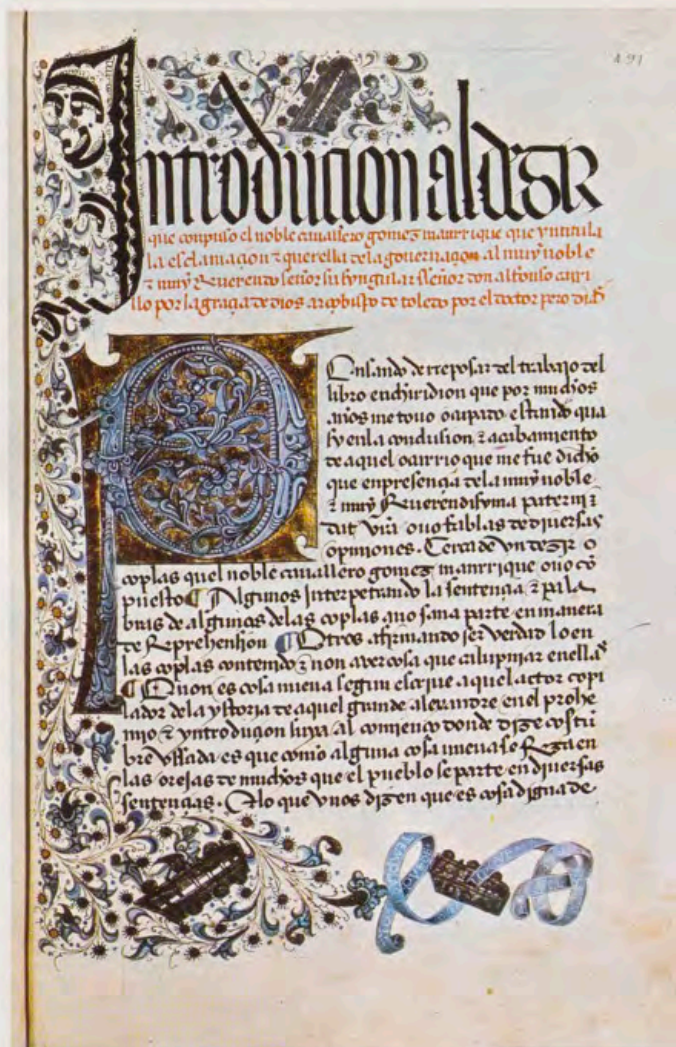 491
Introducion al dezir
que conpuso el noble cauallero gomez manrrique que yntitula
la esclamaçion τ querella dela gouernaçon al muy noble
τ muy Reuerendo señor su syngular sseñor don alfonso carri
llo por la graçia de dios arçobispo de toledo por el doctor pero diaz
Pensando de rreposar del trabajo del
libro enchiridion que por muchos
años me touo ocupado estando qua
sy en la conclusion τ acabamiento
de aquel ocurrio que me fue dicho
que en presençia dela muy noble
τ muy Reuerendisyma paterni
dat vr̃a ouo fablas de diuersas
opiniones. Cerca de vn dezir o
coplas quel noble cauallero gomez manrrique ouo cõ
puesto Algunos Interpetrando la sentençia τ pala
bras de algunas delas coplas a no sana parte en manera
de Reprehension Otros afirmando ser verdad lo en
las coplas contenido τ non auer cosa que calupniar enellas
Ca non es cosa nueua segun escriue aquel actor copi
lador de la ystoria de aquel grande alexandre en el prohe
mio τ yntroduçion suya al comienço donde dize costũ
bre vssada es que como alguna cosa nueua se Reza en
las orejas de muchos que el pueblo se parte en diuersas
sentençias. Ca lo que vnos dizen que es cosa digna de